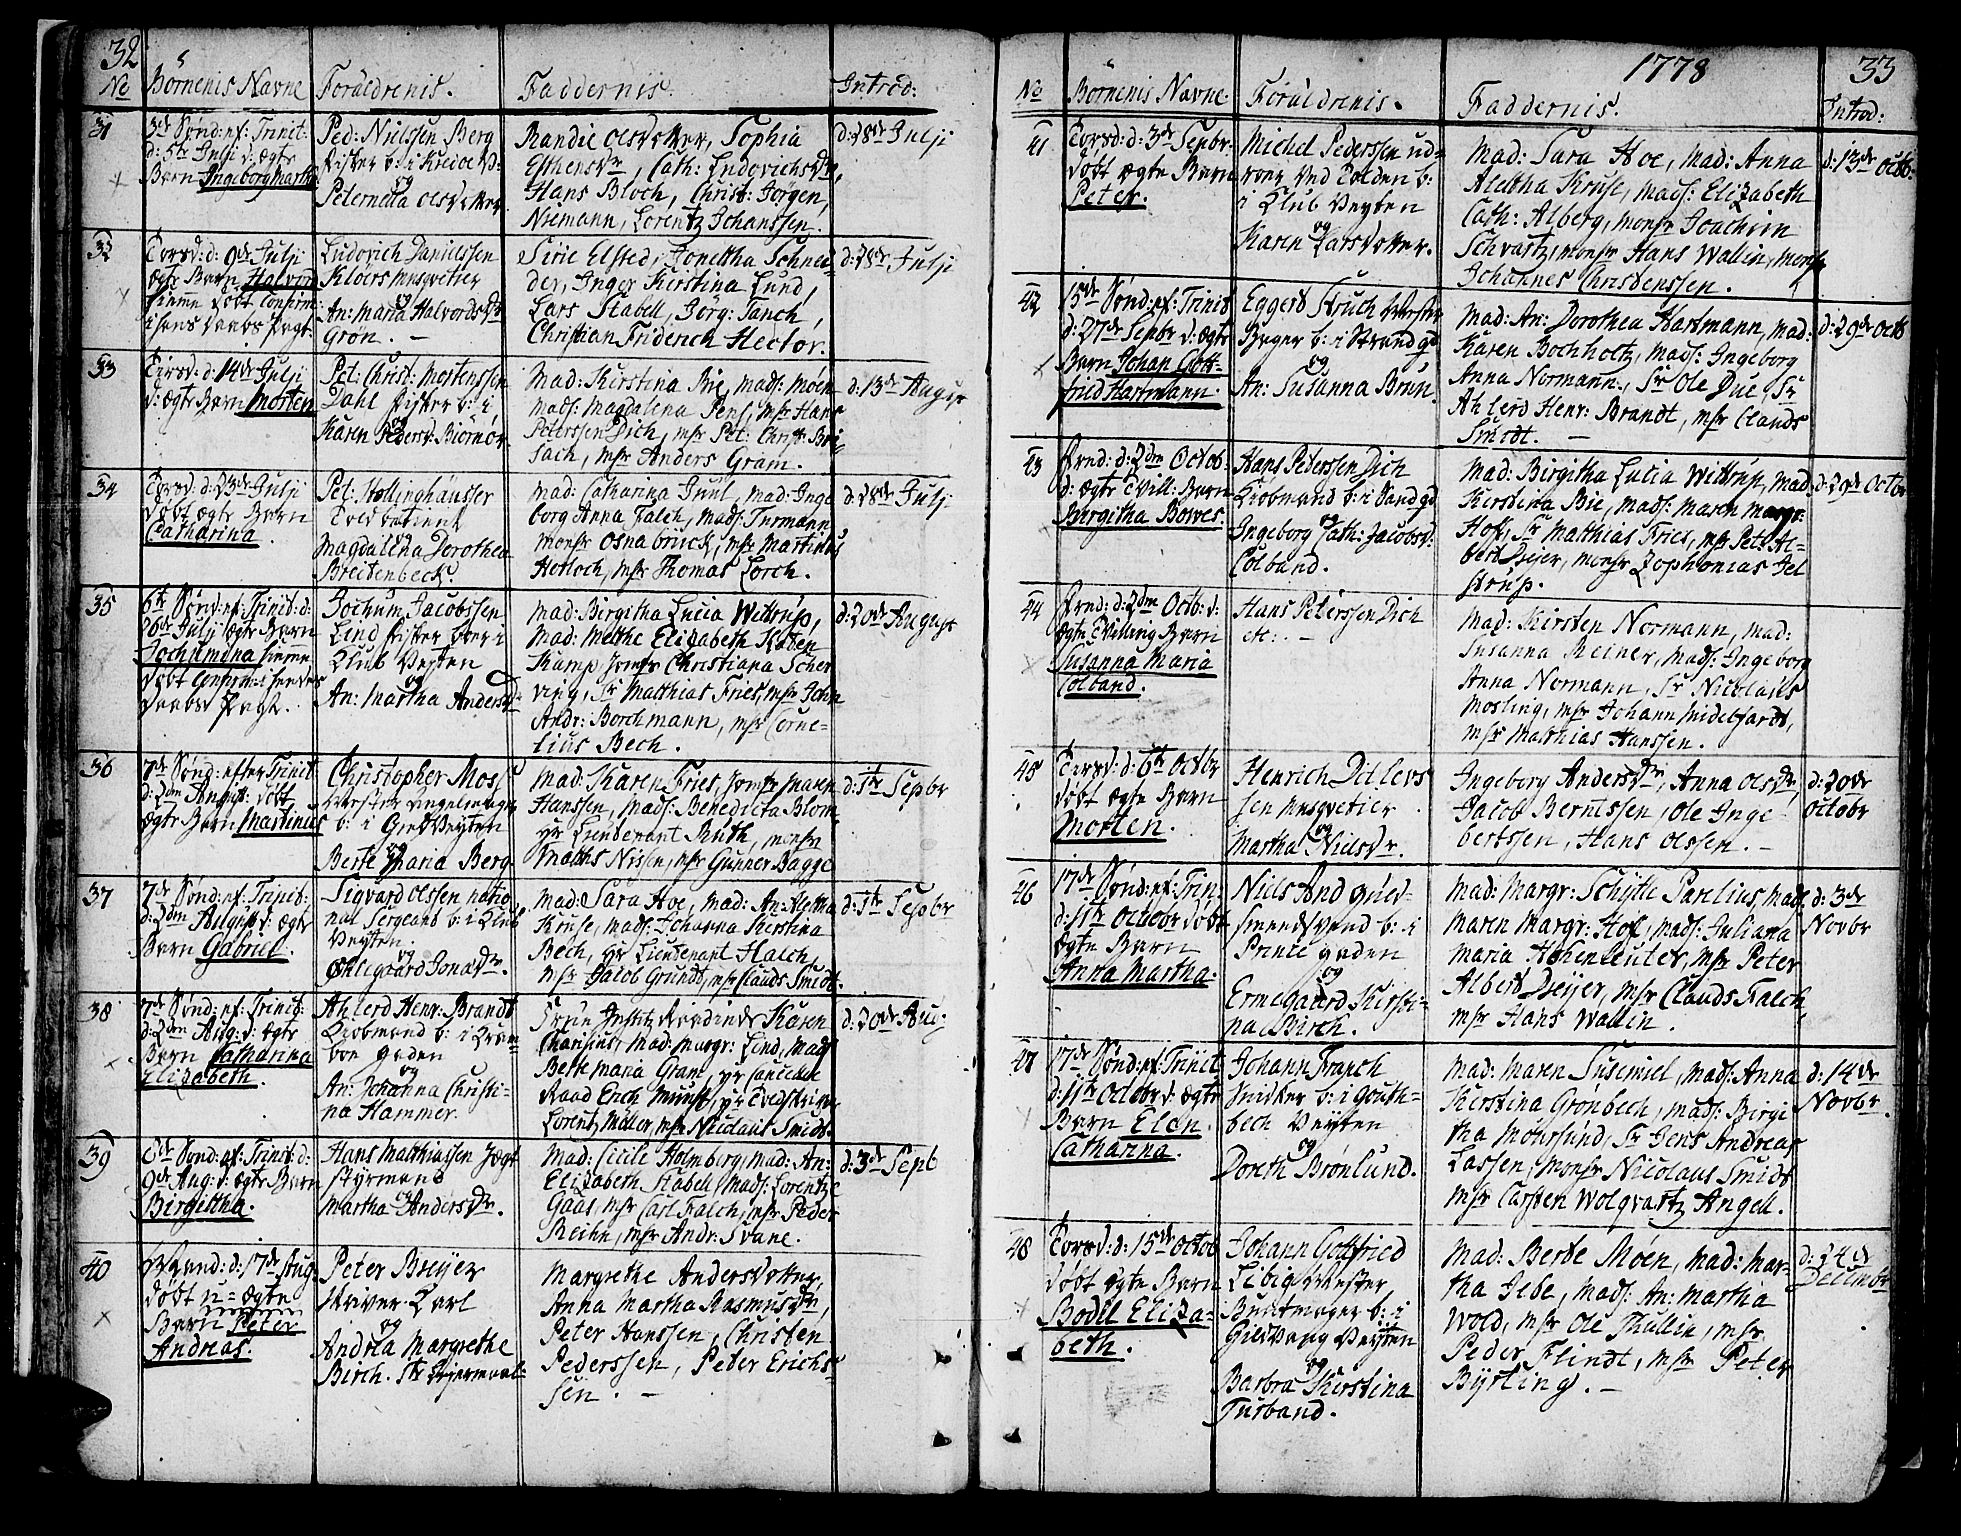 32
No Börnenis Navne Foraldrenis. Faddernis. Introd:
31
3de Sønd: ef: Trinit:
d: 5te Julji d: ægte
Barn Ingeborg Martha
Ped: Nielssen Berg
fisker b: i
og
Peternela Olsdotter
Randie Olsdotter, Sophia
Esthensdr, Cath: Ludovichsdr,
Hans Bloch, Christ: Jörgen,
Niemann, Lorentz Johanssen.
d: 28de Julji
32
Torsd: d: 9de Julji
ægte Barn Halvord
hiemme døbt confirm:
i hans Daabs Pagt.
Ludovich Danielssen
Kloers musqvetier
og
An: Maria Halvordsdr
Grön. —
Sirie Elsted, Jonettha Schnei-
der, Inger Kirstina Lund,
Lars Stabell, Jörg: Tanch,
Christian Friderich Hector.
d: 28de Julji
33
Tirsd: d: 14de Julji
d: ægte Barn Morten
Pet: Christ: Mortenssen
Dahl fisker b: i
og
Karen Pedersd: Biörnör
Mad: Kirstina Bie, mads: Möen
mads: Magdalena Pens, msr Hans
Peterssen Dich, msr Pet: Christ: Bri-
sach, msr Anders Gram.
d: 13de August
34
Torsd: d: 23de Julji
døbt ægte Barn
Catharina.
Pet: Hollinghäuser
Toldbetient
og
Magdalena Dorothea
Breitenbeck.
Mad: Catharina Juul, mad: Inge
borg Anna Falch, mads: Turmann
monsr Osnabrück, msr Martinus
Hotloch, msr Thomas Lorch.
d: 28de Julji
35
6te Sønd: ef: Trinit: d:
26de Julji ægte Barn
Jochumina hiemme
døbt confirm: i hendes
Daabs Pagt.
Jochum Jacobssen
Lind fisker boer i
Klub Veyten
og
An: Martha Andersd:
Mad: Birgitha Lucia Wittrup,
Mad: Metthe Elizabeth Koten
Kamp jomfr Christiana Scher
ving, Sr Matthias Fries, msr John
Andr: Borchmann, msr Corne-
lius Bech.
d: 20de August
36
7de Sønd: efter Trinit
d: 2den August: døbt
ægte Barn Martinus
Christopher Moss
Mester
b: i Grøt Veyten
og
Berte Maria Berg
Mad: Karen Fries, jomfr Maren
Hanssen, mads: Benedicta Blom,
Hr Lieutenant Ruth, monsr
Maths Nissen, msr Gunner Bagge
d: 1te Sepbr
37
7de Sønd: ef: Trinit:
d: 2den August d: ægte
Barn Gabriel.
Sigvard Olssen natio-
nal Sergeant b: i Klub
Veyten.
og
Øllegaard Jonasdr.
Mad: Sara Hoe, mad: An: Aletha
Kruse, mads: Johanna Kirstina
Bech, Hr Lieutenant Hatch,
msr Jacob Grundt, msr Clauds Smidt.
d: 1te Sepbr
38
7de Sønd: ef: Trinit:
d: 2den Aug: d: ægte
Barn Catharina
Elizabeth.
Ahlerd Henr: Brandt
Kiøbmand b: i Kram-
boe Gaden
og
An: Johanna Christi-
na Hammer.
Frue Karen
mad: Margr: Lind, mads
Bethe Maria Gram, Hr Cancellie
Raad Erich Must, Hr Toldskriver
Lorentz Möller, msr Nicolaus Smidt.
d: 20de Aug:
39
8de Sønd: ef: Trinit: d:
9de Aug: d: ægte Barn
Birgitha.
Hans Matthiassen Jægt
Styrmand
og
Martha Andersdr.
Mad: Cicile Holmberg, mad: An:
Elizabeth Stabell, mads: Lorentze
Gaas, msr Carl Falch, msr Peder
Reihn, msr Andr: Svane.
d: 3de Sept
40
Mand: d: 17de Aug:
døbt u-ægte
Barn Peter
Andreas.
Peter Breyer
Skriver Karl
og
Andrea Margrethe
Birch.
Margrethe Andersdotter,
Anna Martha Rasmusdr,
Peter Hanssen, Christen
Pederssen, Peter Erichs-
sen. —
1778 33
No Börnenis Navne Foraldrenis. Faddernis. Introd:
41
Torsd: d: 3de Sepbr:
døbt ægte Barn
Peter.
Michel Pederssen ud-
roer ved Tolden b:
i Klub Veyten
og
Karen Larsdotter.
Mad: Sara Hoe, mad: Anna
Alettha Kruse, mads: Elizabeth
Cath: Alberg, monsr Joachim
Schvartz, monsr Hans Wallin, monsr
Johannes Christenssen.
d: 13de Octb:
42
15de Sønd: ef: Trinit
d: 27de Sepbr d: ægte
Barn Johan Gott-
fried Hartmann
Eggerd Struch Mester
Bager b: i Strand gd
og
An: Susanna Brun
Mad: An: Dorothea Hartmann, mad:
Karen Bochholtz, mads: Ingeborg
Anna Normann, Sr Ole Due, Sr
Ahlerd Henr: Brandt, msr Clauds
Smidt. —
d: 29de Octb
43
Fred: d: 2den Octob:
d: ægte Tvill: Barn
Birgitha Bowes.
Hans Peterssen Dich
Kiøbmand b: i Sand gd
og
Ingeborg Cath: Jacobsd:
Colband.
Mad: Birgitha Lucia Wittrup, mad
Kirstina Bie, mads: Maren Margr:
Hoff, Sr Matthias Fries, msr Pet: Al-
bert Dreyer, monsr Zophonias Jel
strup.
d: 29de Octbr
44
Fred: d: 2den Octb: d:
ægte Tvilling Barn
Susanna Maria
Colband.
Hans Peterssen Dich
etc: —
Mad: Kirsten Normann, mad:
Susanna Reiner, mads: Ingeborg
Anna Normann, Sr Nicolaus
Mosling, msr Johann Midelfardt,
msr Matthias Hanssen.
45
Tirsd: d: 6te Octbr
døbt ægte Barn
Morten.
Henrich Ditlevs
sen Musqvetier
og
Martha Nielsdr.
Ingeborg Andersdr, Anna Olsdr,
Jacob Berntssen, Ole Inge-
bertssen, Hans Olssen. —
d: 20de
Octobr
46
17de Sønd: ef: Trin:
d: 11te Octobr døbt
ægte Barn
Anna Martha.
Niels And guld-
smeedsvend b: i
Printz gaden
og
Ermegaard Kirsti-
na Birch.
Mad: Margr: Schytte Parelius, mads
Maren Margr: Hof, mads: Juliana
Maria Hohenleuter, msr Peter
Albert Dreyer, msr Clauds Falch,
msr Hans Wallin.
d: 3de
Novbr
47
17de Sønd: ef: Trinit
d: 11te Octobr d: ægte
Barn Elen
Catharina.
Johann Frasch
Snidker b: i Gouth-
bech Veyten
og
Doreth Brönlund.
Mad: Maren Susemiel, mads: Anna
Kirstina Grönbech, mads: Birgi
tha Mohrsund, Sr Jens Andreas
Lassen, monsr Nicolaus Smidt
msr Carsten Wolqvartz Angell.
d: 14de
Novbr
48
Torsd: d: 15de Octob
døbt ægte Barn
Bodel Eliza-
beth.
Johann Gottfried
Libig Mester
Buntmager b: i
Veyten
og
Barbra Kirstina
Tusband.
Mad: Berte Möen, mad: Mar-
tha Jebe, mads: An: Martha
Wold, msr Ole Thullin, msr
Peder Flindt, msr Peter
Byrting. —
d: 24de
Decembr